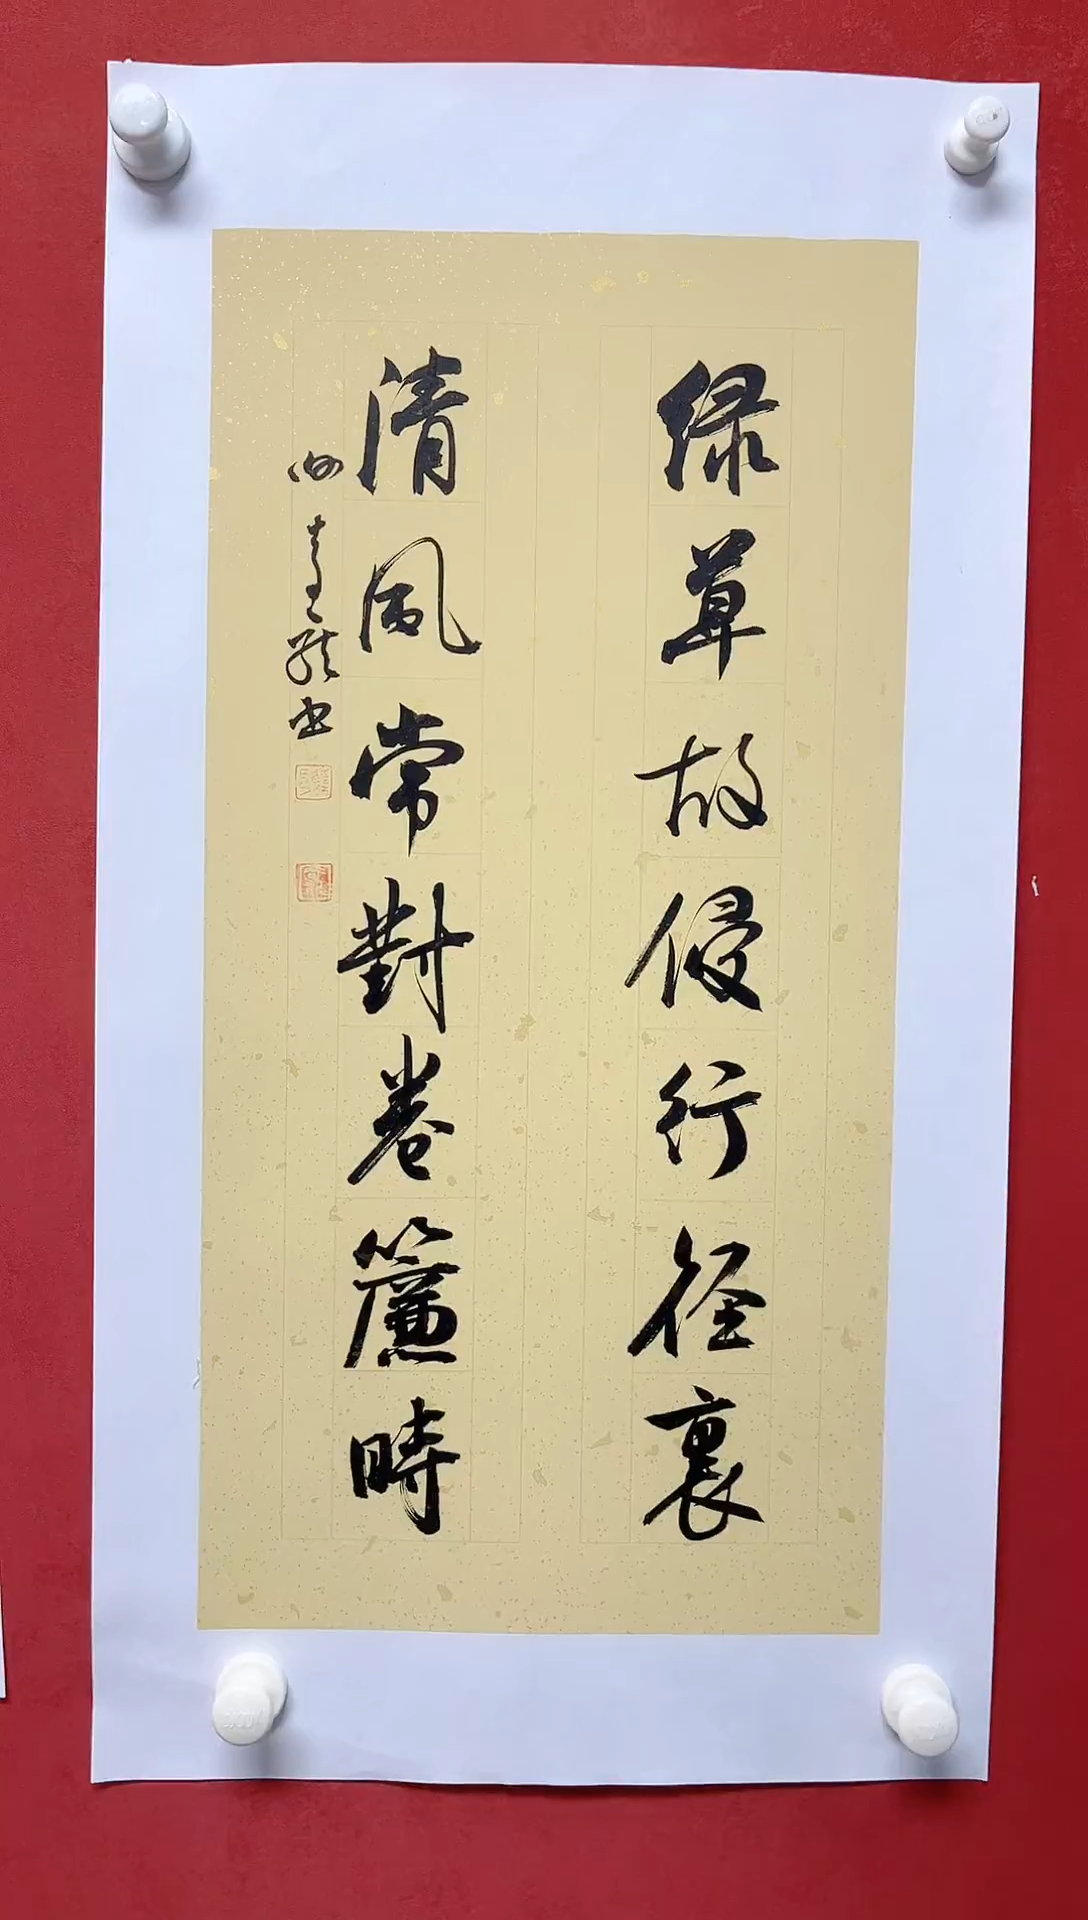 绿草故侵行径裏
清風常對卷簾時
書